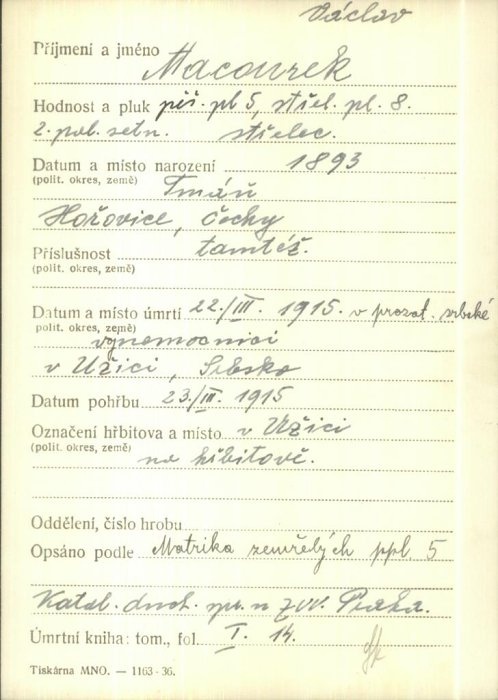 Václav
Příjmení a jméno Macourek
Hodnost a pluk pěš. pl 5, střel. pl. 8.
2. pol. setn. střelec.
Datum a místo narození 1893
(polit. okres, země) Tmáň
Hořovice, Čechy
Příslušnost tamtéž.
(polit. okres, země)
Datum a místo úmrtí 22./III. 1915. v prozat. srbské
polit. okres, země)
v Užici, Srbsko
Datum pohřbu 23./III. 1915
Označení hřbitova a místo v Užici
(polit. okres, země) na hřbitově.
Oddělení, číslo hrobu
Opsáno podle Matrika zemřelých ppl. 5
Katal. duch. spr. u ZVV. Praha.
Úmrtní kniha: tom., fol. I. 14.
Tiskárna MNO. — 1163 - 36.